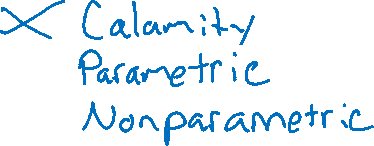 Calamity
Parametric
Nonparametric